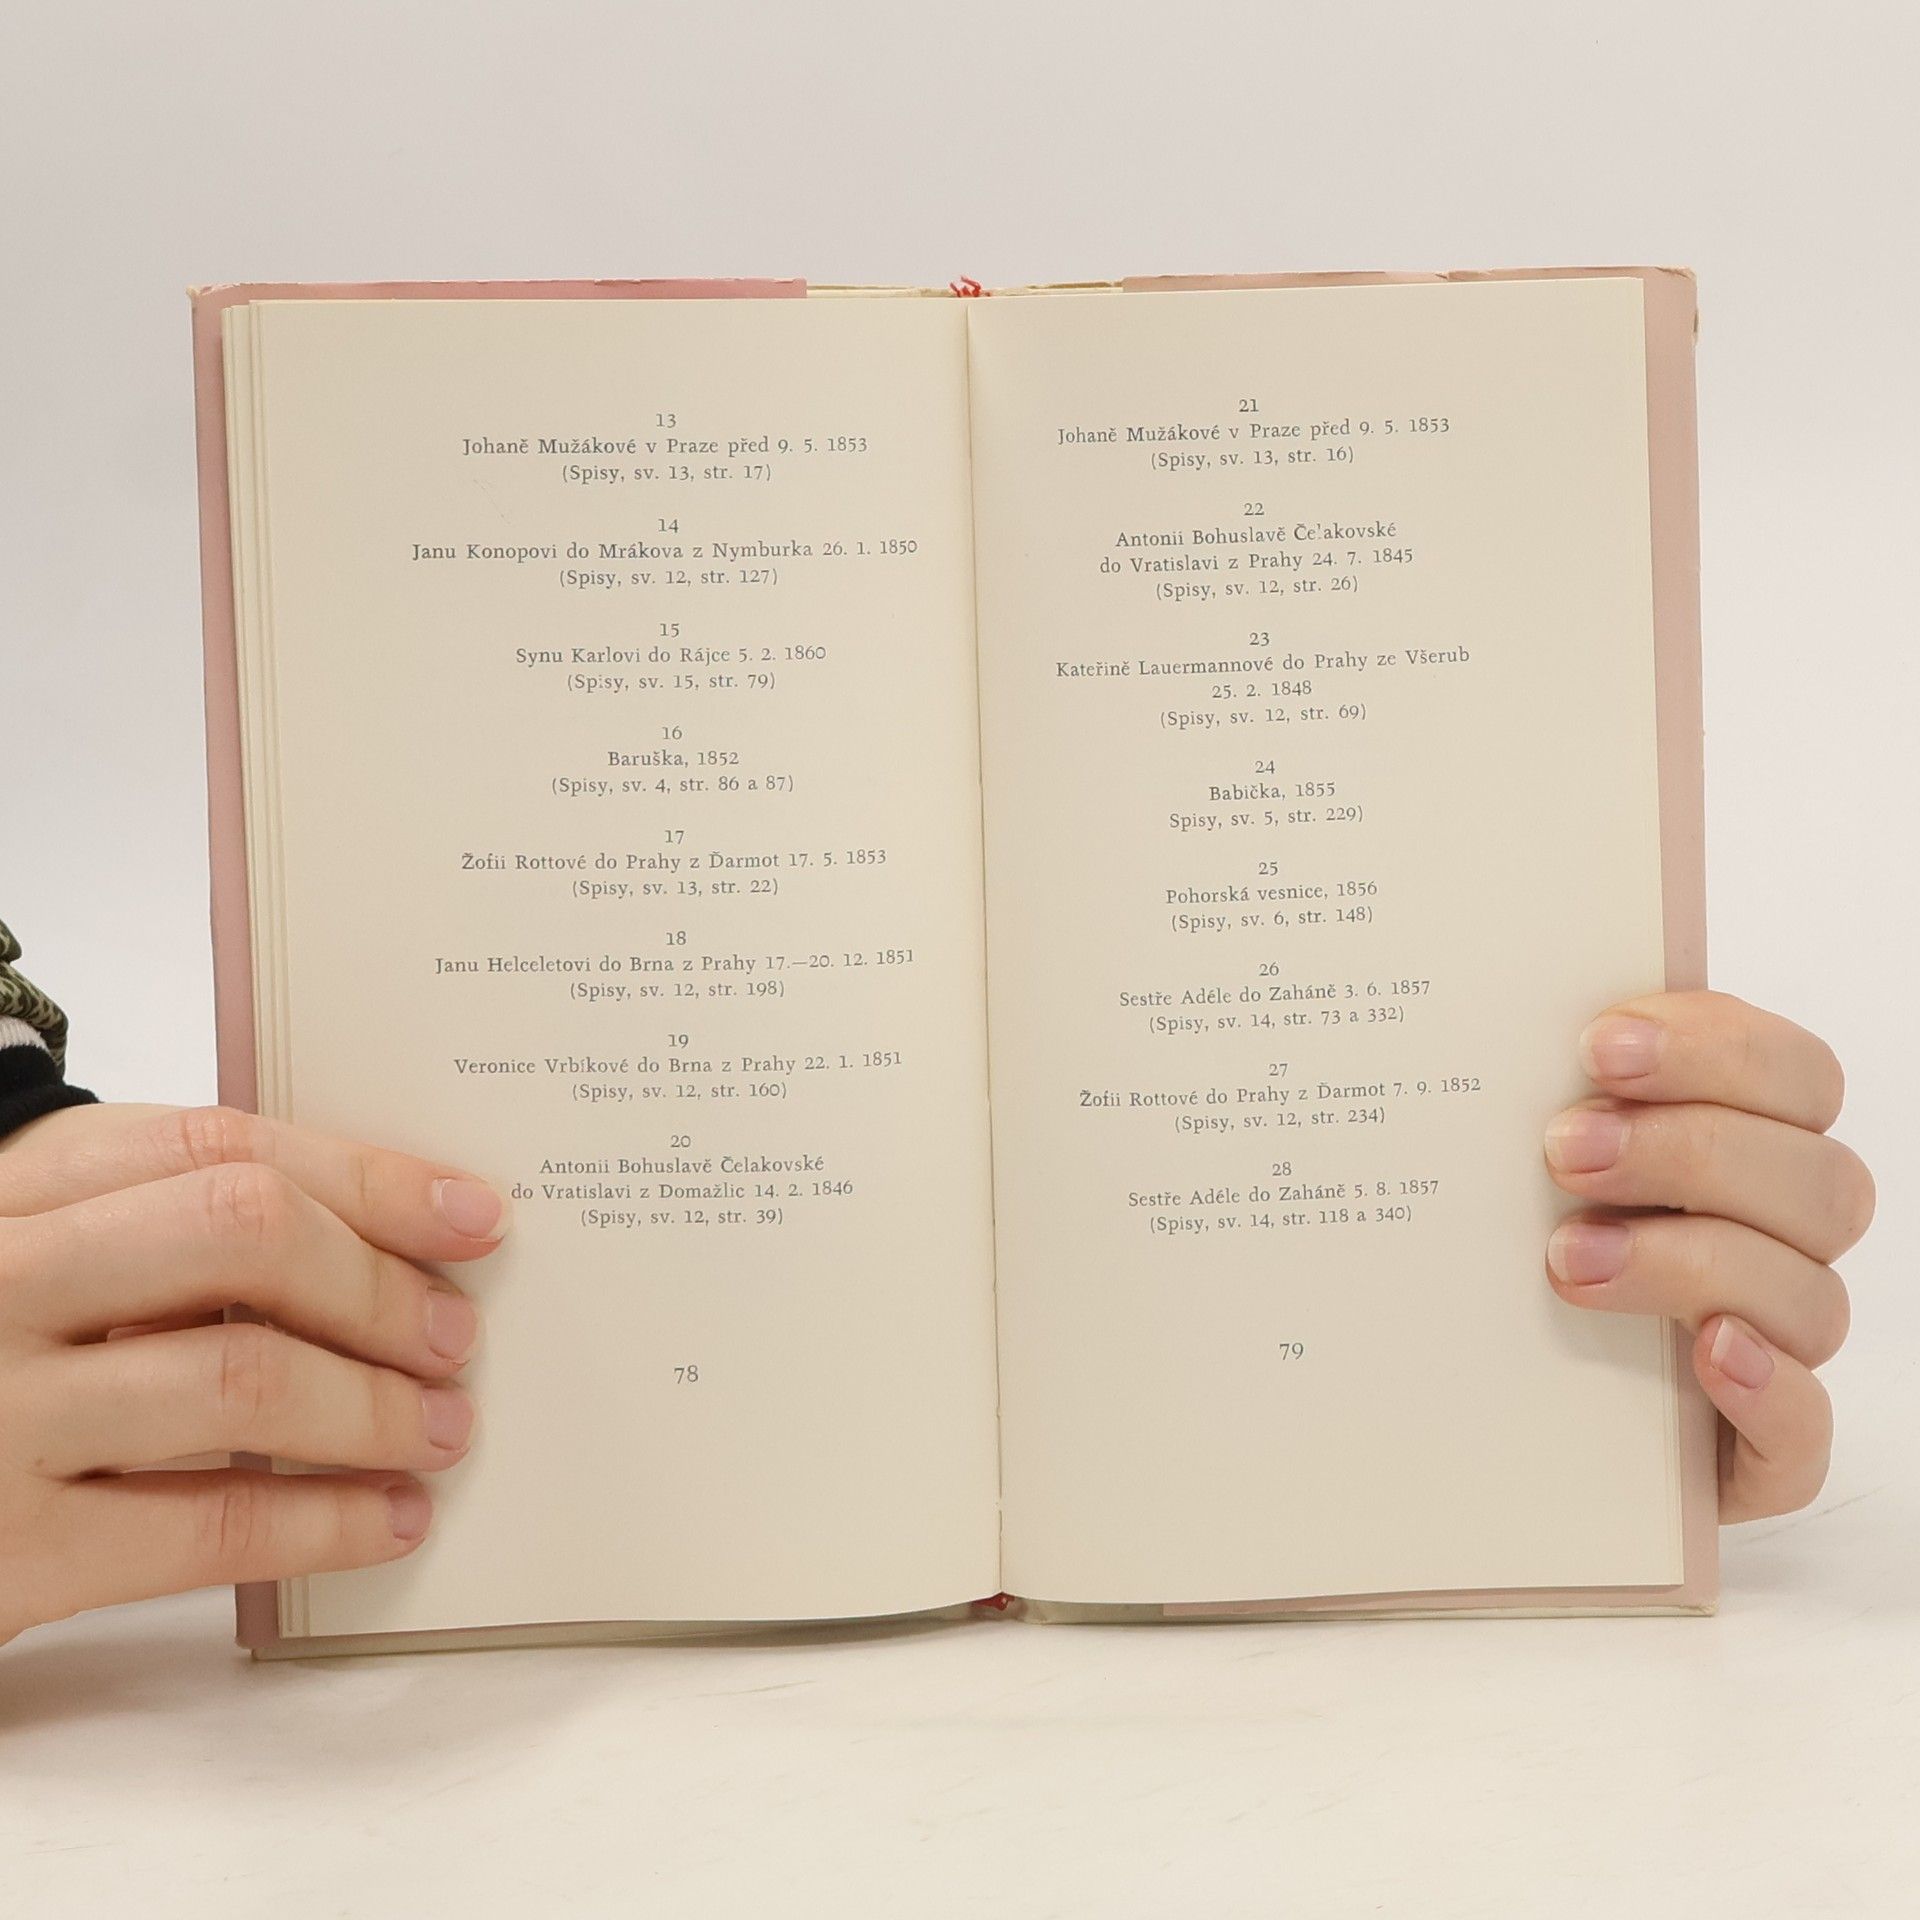 13
Johaně Mužákové v Praze před 9. 5. 1853
(Spisy, sv. 13, str. 17)
14
Janu Konopovi do Mrákova z Nymburka 26. 1. 1850
(Spisy, sv. 12, str. 127)
15
Synu Karlovi do Rájce 5. 2. 1860
(Spisy, sv. 15, str. 79)
16
Baruška, 1852
(Spisy, sv. 4, str. 86 a 87)
17
Žofii Rottové do Prahy z Ďarmot 17. 5. 1853
(Spisy, sv. 13, str. 22)
18
Janu Helceletovi do Brna z Prahy 17.—20. 12. 1851
(Spisy, sv. 12, str. 198)
19
Veronice Vrbíkové do Brna z Prahy 22. 1. 1851
(Spisy, sv. 12, str. 160)
20
Antonii Bohuslavě Čelakovské
do Vratislavi z Domažlic 14. 2. 1846
(Spisy, sv. 12, str. 39)
78
21
Johaně Mužákové v Praze před 9. 5. 1853
(Spisy, sv. 13, str. 16)
22
Antonii Bohuslavě Čelakovské
do Vratislavi z Prahy 24. 7. 1845
(Spisy, sv. 12, str. 26)
23
Kateřině Lauermannové do Prahy ze Všerub
25. 2. 1848
(Spisy, sv. 12, str. 69)
24
Babička, 1855
Spisy, sv. 5, str. 229)
25
Pohorská vesnice, 1856
(Spisy, sv. 6, str. 148)
26
Sestře Adéle do Zaháně 3. 6. 1857
(Spisy, sv. 14, str. 73 a 332)
27
Žofii Rottové do Prahy z Ďarmot 7. 9. 1852
(Spisy, sv. 12, str. 234)
28
Sestře Adéle do Zaháně 5. 8. 1857
(Spisy, sv. 14, str. 118 a 340)
79